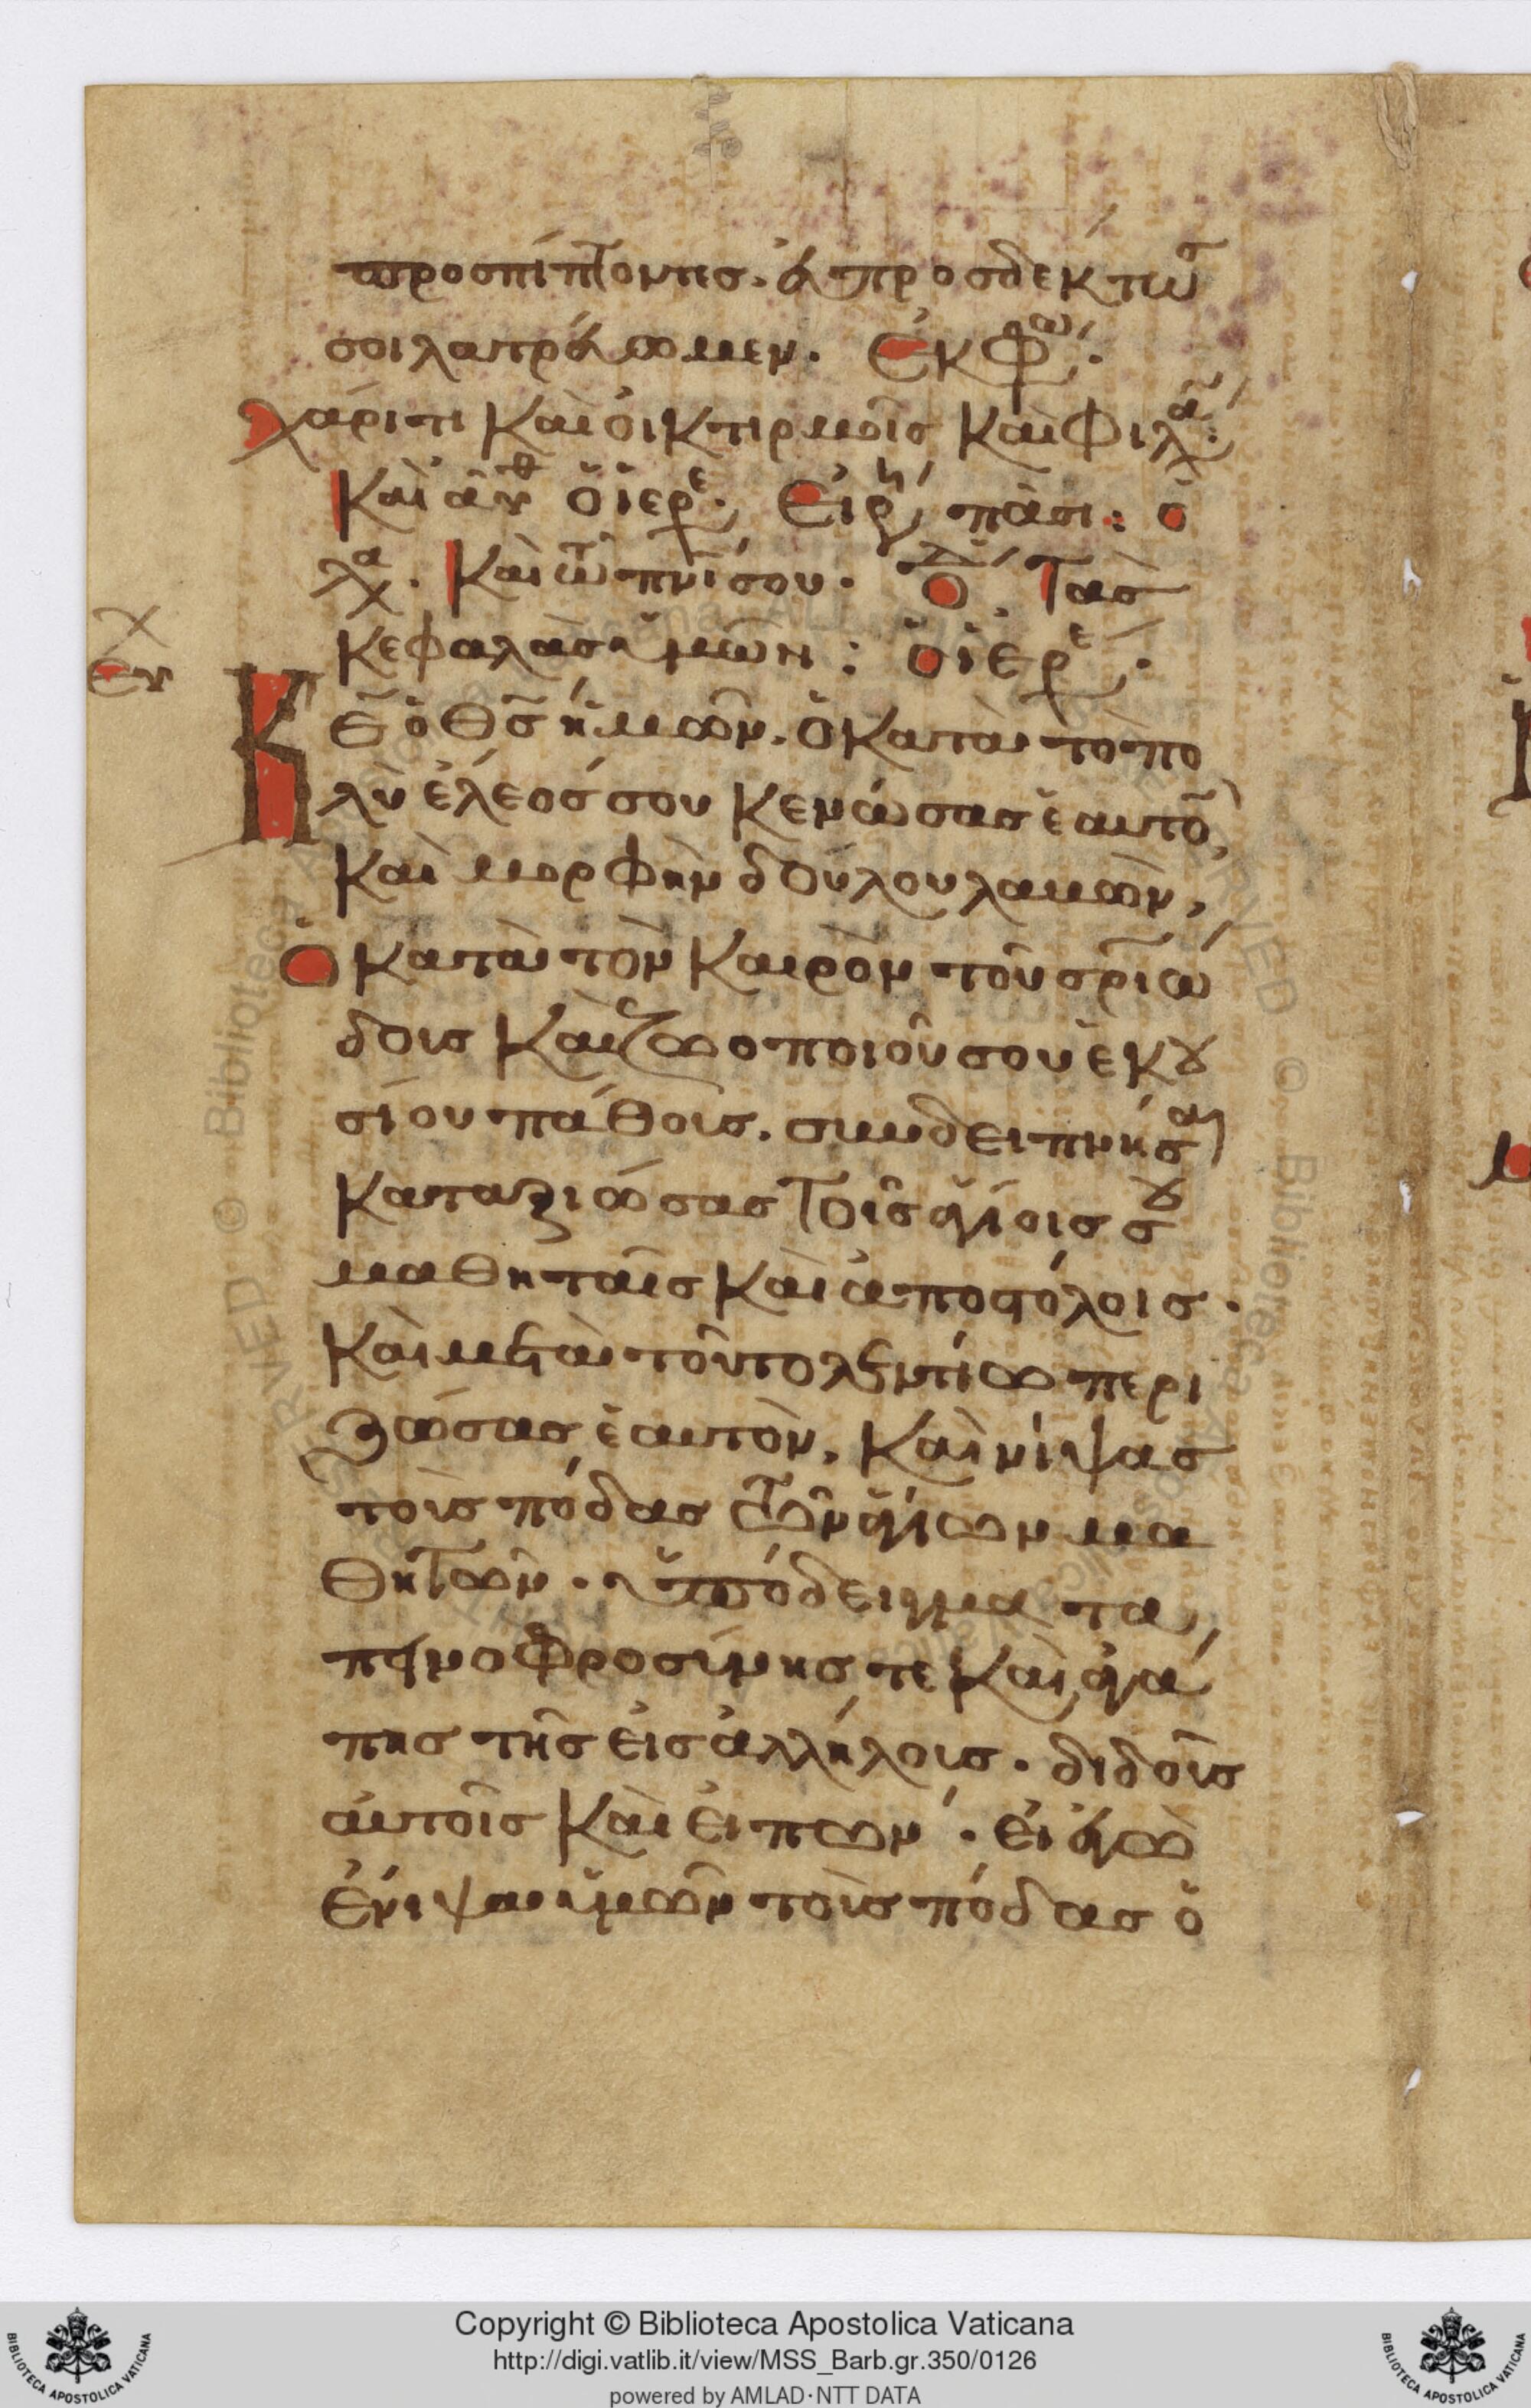 προσπίπτοντες. εὐπροσδέκτως
σοι λατρεύσωμεν. Ἐκφω.
χάριτι καὶ οἰκτιρμοῖς καὶ φιλα:
ὁ ἱερε. Εἰρη πᾶσι: ὁ
λα. Καὶ τῶ πνί σου. Ὁ Δ Τὰς
κεφαλὰς ὑμῶν: ὁ ἱερε.
Ευχ
Κε̄ ὁ θς̄ ἡμῶν. ὁ κατὰ τὸ πο
λὺ ἔλεός σου κενώσας ἑαυτὸ,
καὶ μορφὴν δούλου λαβών,
Ὁ κατὰ τὸν καιρὸν τοῦ σρ̄ιώ
δους καὶ ζωοποιοῦ σου ἑκου
σίου πάθους. συνδειπνῆσαι
καταξιώσας τοῖς ἁγίοις σου
μαθηταῖς καὶ ἀποστόλοις.
Καὶ μετὰ τοῦτο λεντίω περι
ζώσας ἑαυτὸν, καὶ νίψας
τοὺς πόδας τῶν ἁγίων μα
θητῶν. ὑπόδειγμα τα
πεινοφροσύνης τε καὶ ἀγά
πης τῆς εἰς ἀλλήλους. διδοὺς
αὐτοῖς καὶ εἰπών. εἰ ἐγὼ
ἔνιψα ὑμῶν τοὺς πόδας ὁ
Copyright © Biblioteca Apostolica Vaticana
http://digi.vatlib.it/view/MSS_Barb.gr.350/0126
powered by AMLAD·NTT DATA
BIBLIOTECA APOSTOLICA VATICANA
BIBLIOTECA APOSTOLICA VATICANA